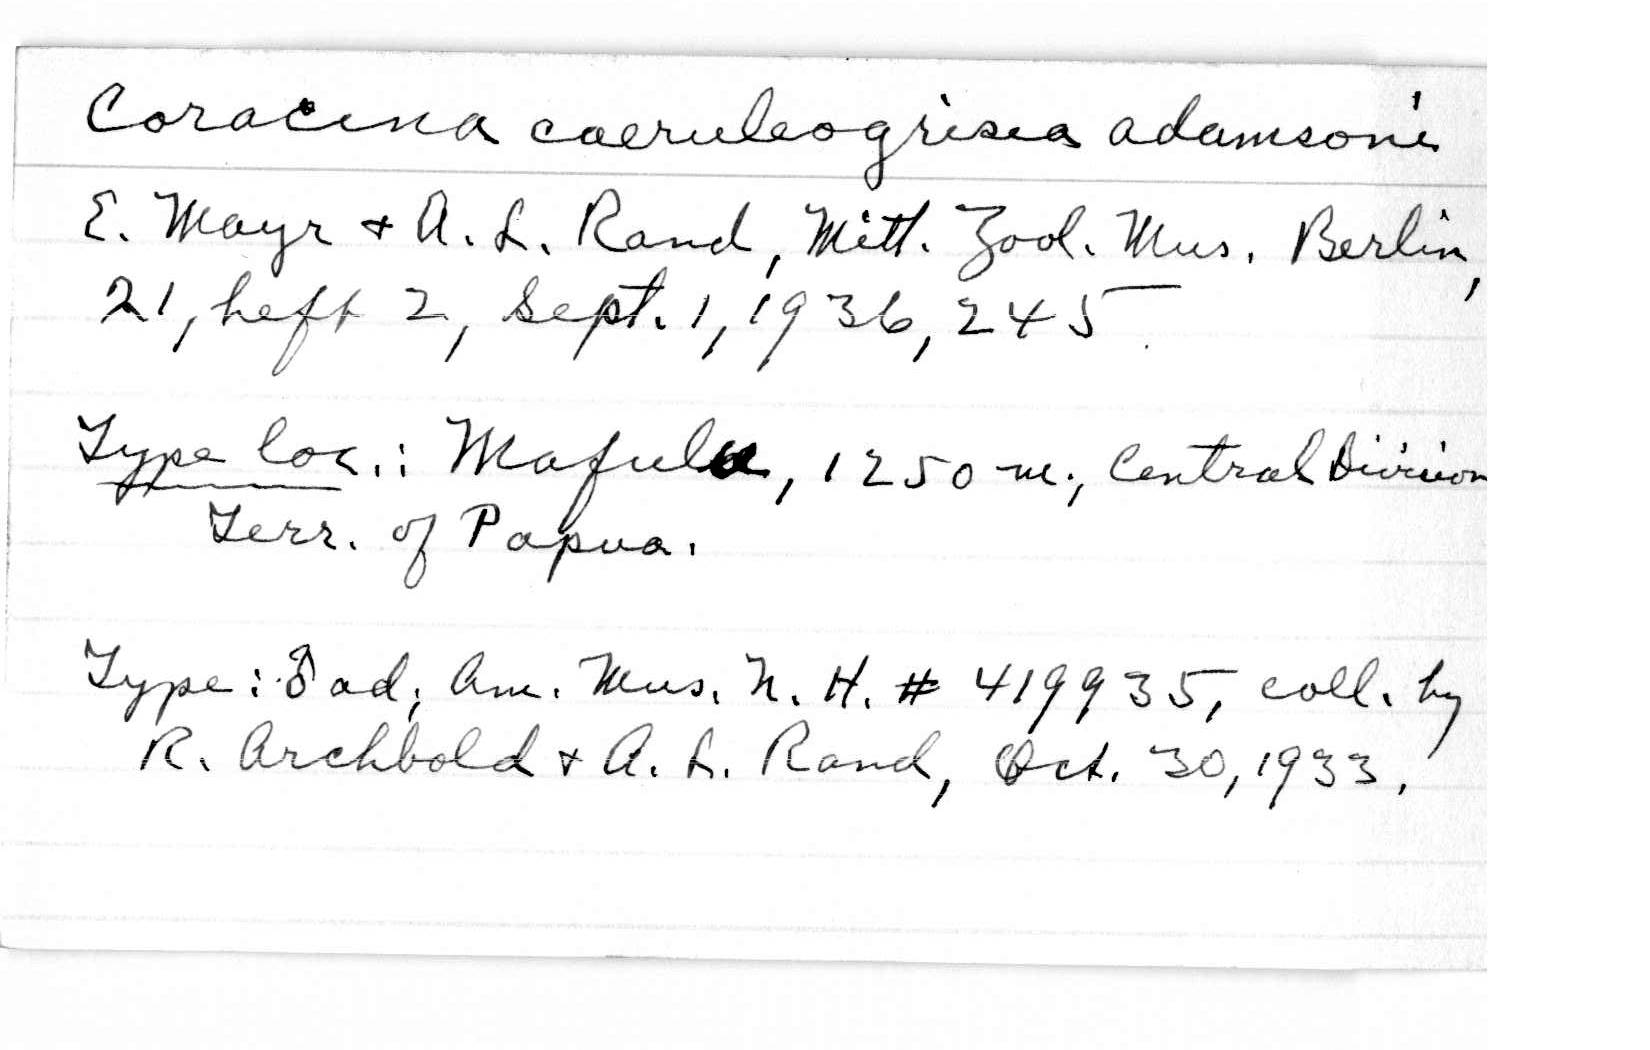 Coracina caeruleogrisea adamsoni
E. Mayr + A. L. Rand, Mitt. Zool. Mus. Berlin,
21, heft 2, Sept. 1, 1936, 245.
Type loc.: Mafulu, 1250 m., Central Division
Terr. of Papua.
Type: ♂ ad, Am. Mus. N. H. # 419935, coll. by
R. Archbold + A. L. Rand, Oct. 30, 1933.